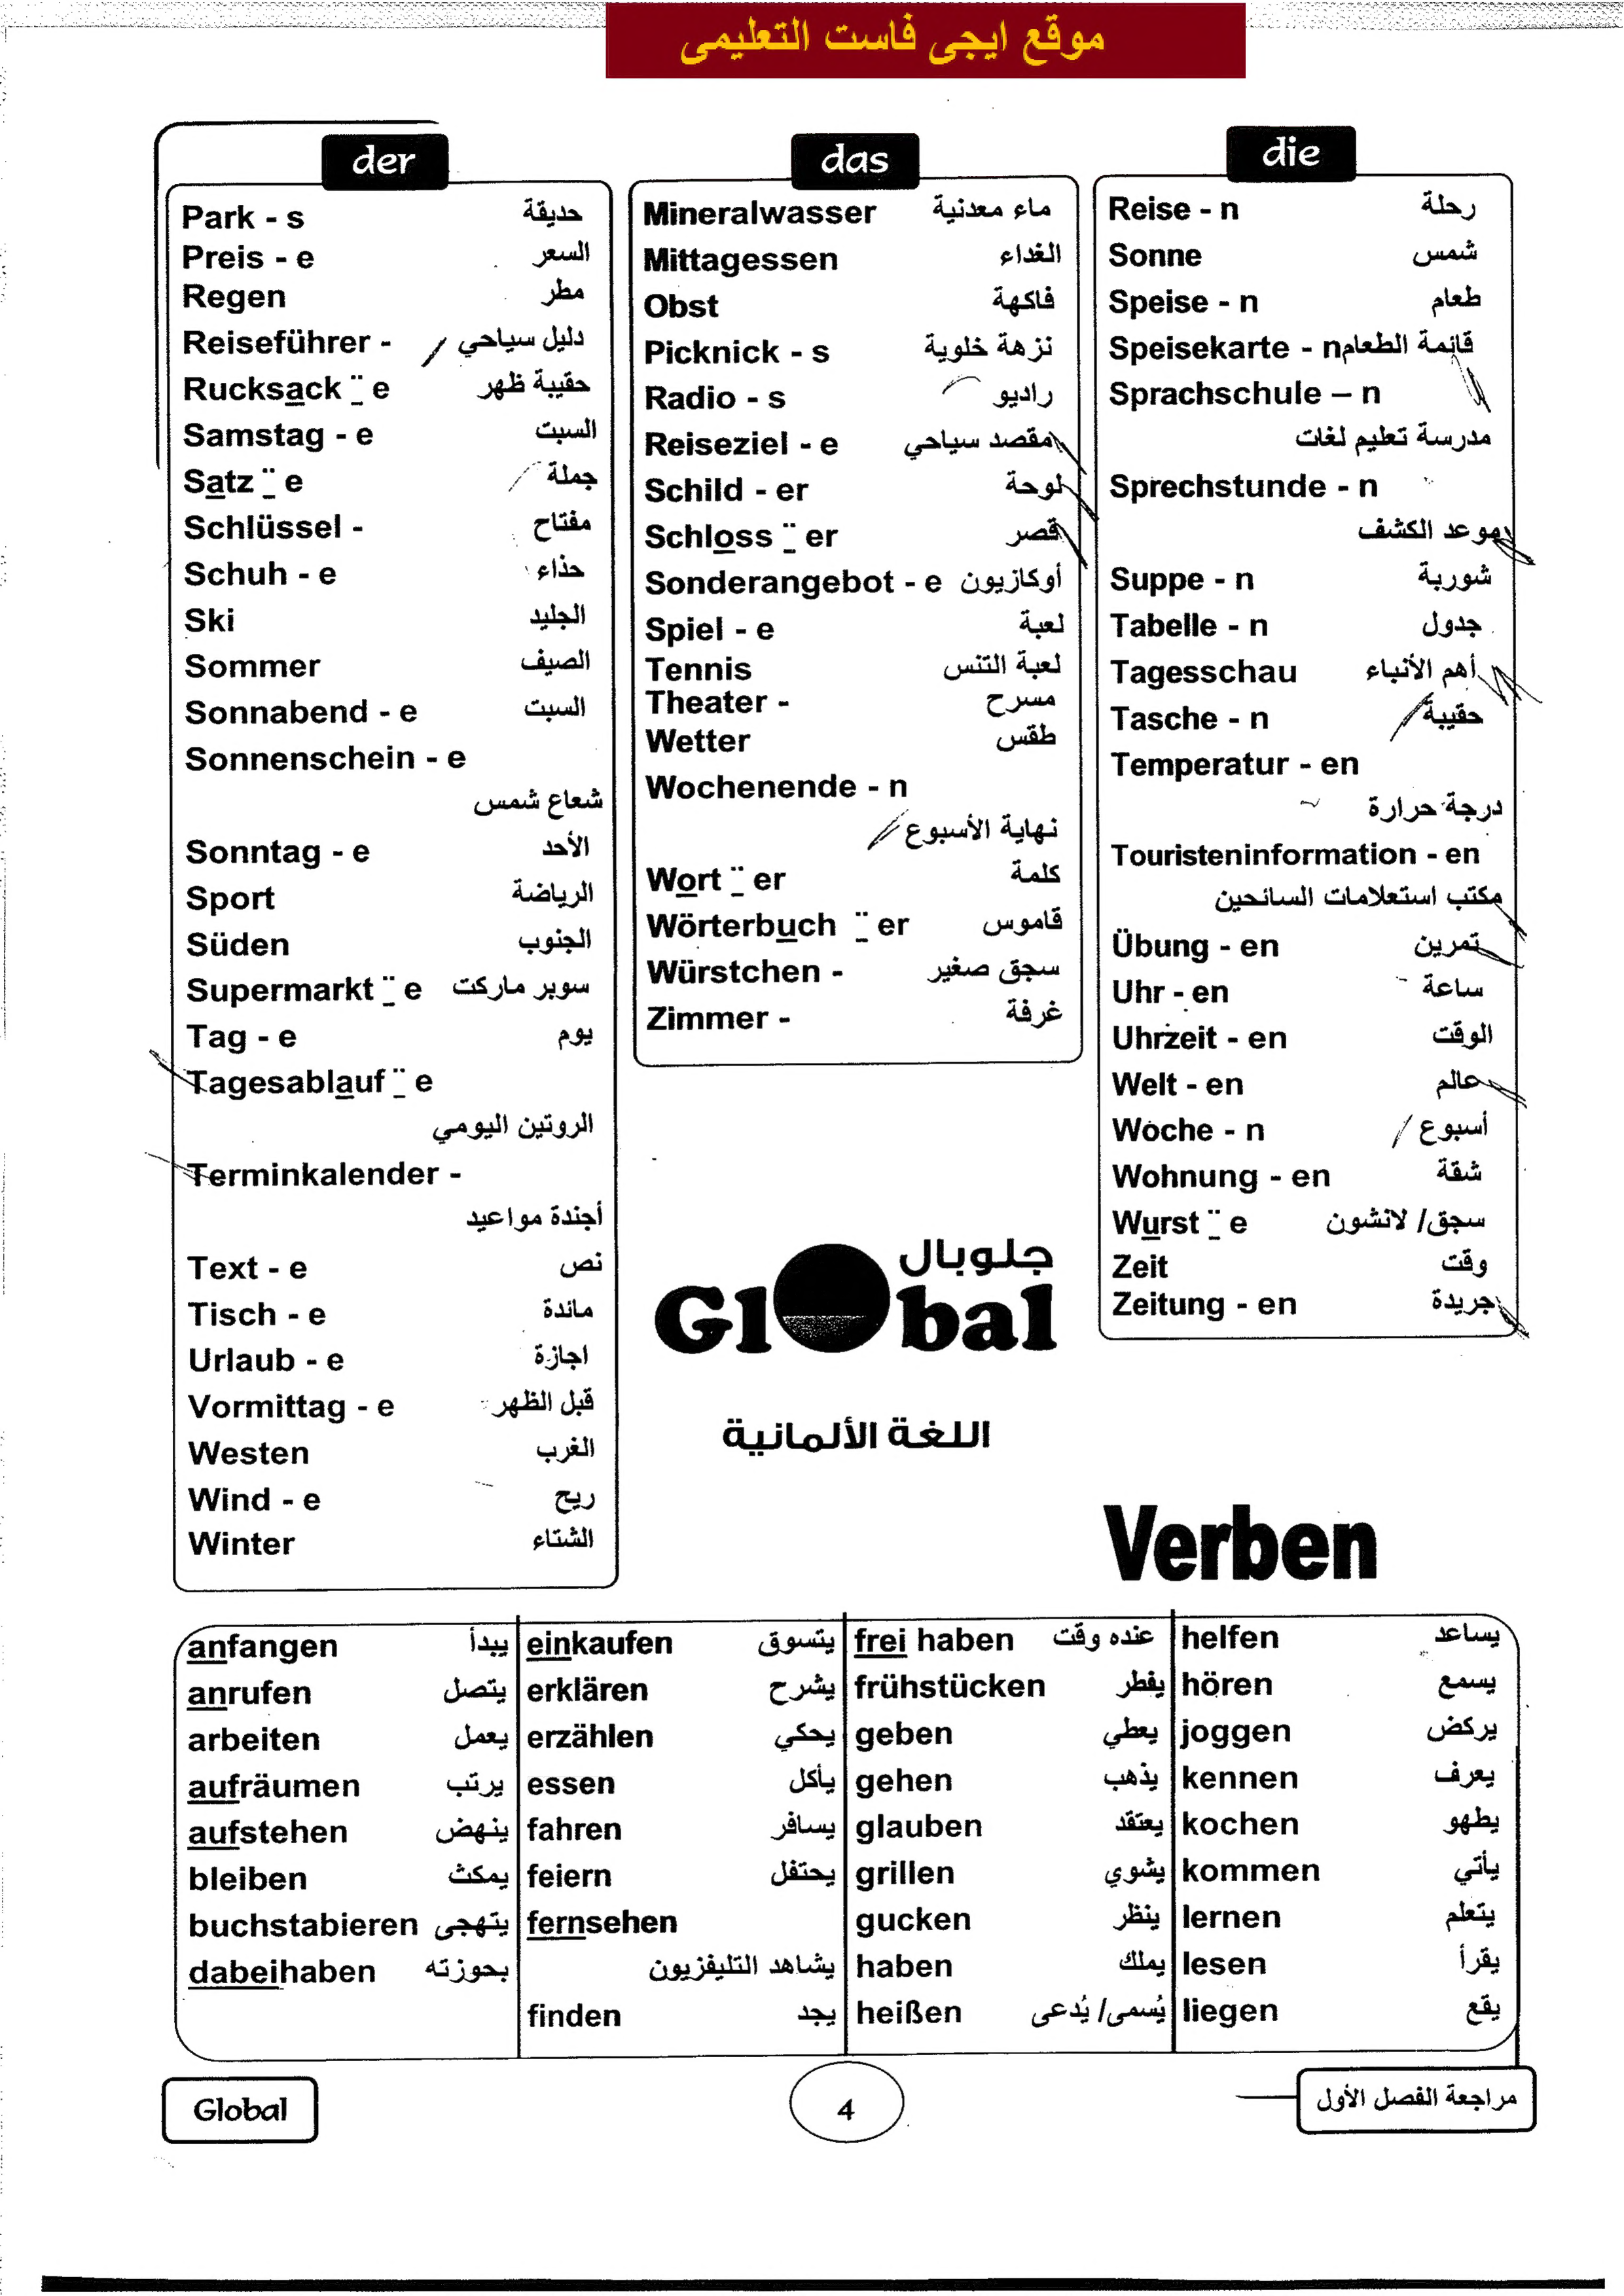 موقع ايجى فاست التعليمى
der
Park - s حديقة
Preis - e السعر
Regen مطر
Reiseführer - دليل سياحي
Rucksack ¨ e حقيبة ظهر
Samstag - e السبت
Satz ¨ e جملة
Schlüssel - مفتاح
Schuh - e حذاء
Ski الجليد
Sommer الصيف
Sonnabend - e السبت
Sonnenschein - e
شعاع شمس
Sonntag - e الأحد
Sport الرياضة
Süden الجنوب
Supermarkt ¨ e سوبر ماركت
Tag - e يوم
Tagesablauf ¨ e
الروتين اليومي
Terminkalender -
أجندة مواعيد
Text - e نص
Tisch - e مائدة
Urlaub - e اجازة
Vormittag - e قبل الظهر
Westen الغرب
Wind - e ريح
Winter الشتاء
das
Mineralwasser ماء معدنية
Mittagessen الغداء
Obst فاكهة
Picknick - s نزهة خلوية
Radio - s راديو
Reiseziel - e مقصد سياحي
Schild - er لوحة
Schloss ¨ er قصر
Sonderangebot - e أوكازيون
Spiel - e لعبة
Tennis لعبة التنس
Theater - مسرح
Wetter طقس
Wochenende - n
نهاية الأسبوع
Wort ¨ er كلمة
Wörterbuch ¨ er قاموس
Würstchen - سجق صغير
Zimmer - غرفة
die
Reise - n رحلة
Sonne شمس
Speise - n طعام
Speisekarte - n قائمة الطعام
Sprachschule – n
مدرسة تعليم لغات
Sprechstunde - n
موعد الكشف
Suppe - n شوربة
Tabelle - n جدول
Tagesschau أهم الأنباء
Tasche - n حقيبة
Temperatur - en
درجة حرارة
Touristeninformation - en
مكتب استعلامات السائحين
Übung - en تمرين
Uhr - en ساعة
Uhrzeit - en الوقت
Welt - en عالم
Woche - n أسبوع
Wohnung - en شقة
Wurst ¨ e سجق/ لانشون
Zeit وقت
Zeitung - en جريدة
جلوبال
Global
اللغة الألمانية
Verben
anfangen يبدأ
anrufen يتصل
arbeiten يعمل
aufräumen يرتب
aufstehen ينهض
bleiben يمكث
buchstabieren يتهجى
dabeihaben بحوزته
einkaufen يتسوق
erklären يشرح
erzählen يحكي
essen يأكل
fahren يسافر
feiern يحتفل
fernsehen
يشاهد التليفزيون
finden يجد
frei haben عنده وقت
frühstücken يفطر
geben يعطي
gehen يذهب
glauben يعتقد
grillen يشوي
gucken ينظر
haben يملك
heißen يُسمى/ يُدعى
helfen يساعد
hören يسمع
joggen يركض
kennen يعرف
kochen يطهو
kommen يأتي
lernen يتعلم
lesen يقرأ
liegen يقع
Global
4
مراجعة الفصل الأول